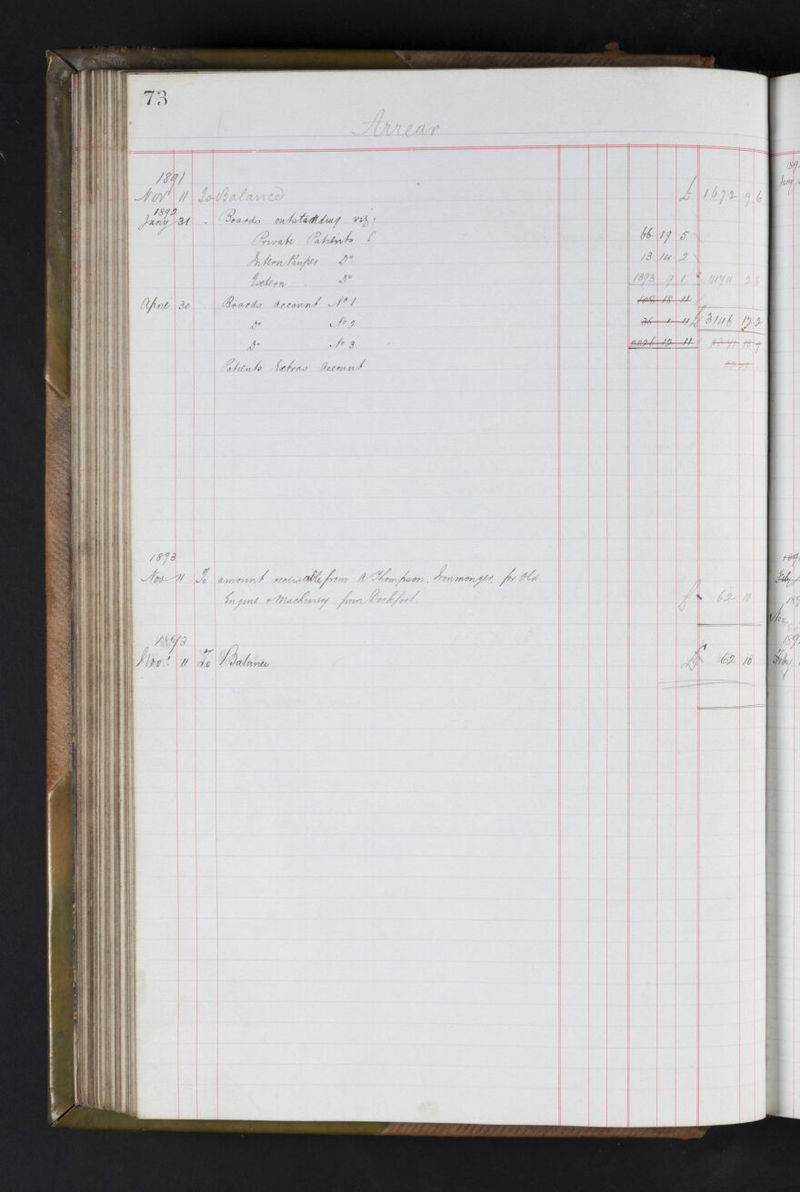 73
Arrear
1891
Nov 11 To Balance £ 1672 9 6
1892
Jany 31 " Boards outstanding viz:
Private Patients £ 66 19 5
Intern Pauper Do 13 14 2
Extern Do 1393 9 1 1474 2 8
April 30 Boards Account No 1 108 18 11
Do No 2 36 1 11 £ 3146 12 2
Do No 3 12 11
Patients Extras Account
1893
Nov 11 To amount receivable from A Thompson, Ironmonger, for Old £ 62 10
Engine & Machinery from
1893
Novr 11 To Balance £ 62 10